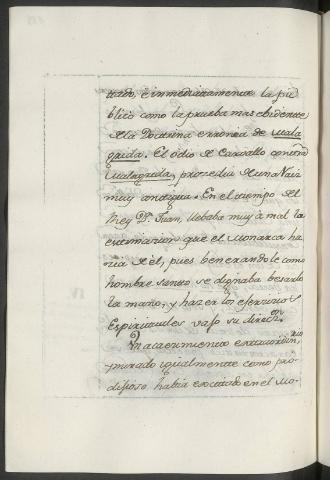 trado, è inmediatamente la pu-
blicò como la prueba mas ebidente
de la Doctrina erronea de Mala-
grida. El òdio de Carvallo contra
Malagrida, procedia de una Raiz
muy antigua. En el tiempo del
Rey Dn. Juan, llebaba muy à mal la
estimacion que el Monarca ha-
cia de èl, pues benerandole como
hombre santo se dignaba besarle
la mano, y hazer los exercicios
Espirituales vajo su direcn.
Un acaecimiento extraordinrio,
mirado igualmente como pro-
digioso habia excitado en el Mo-